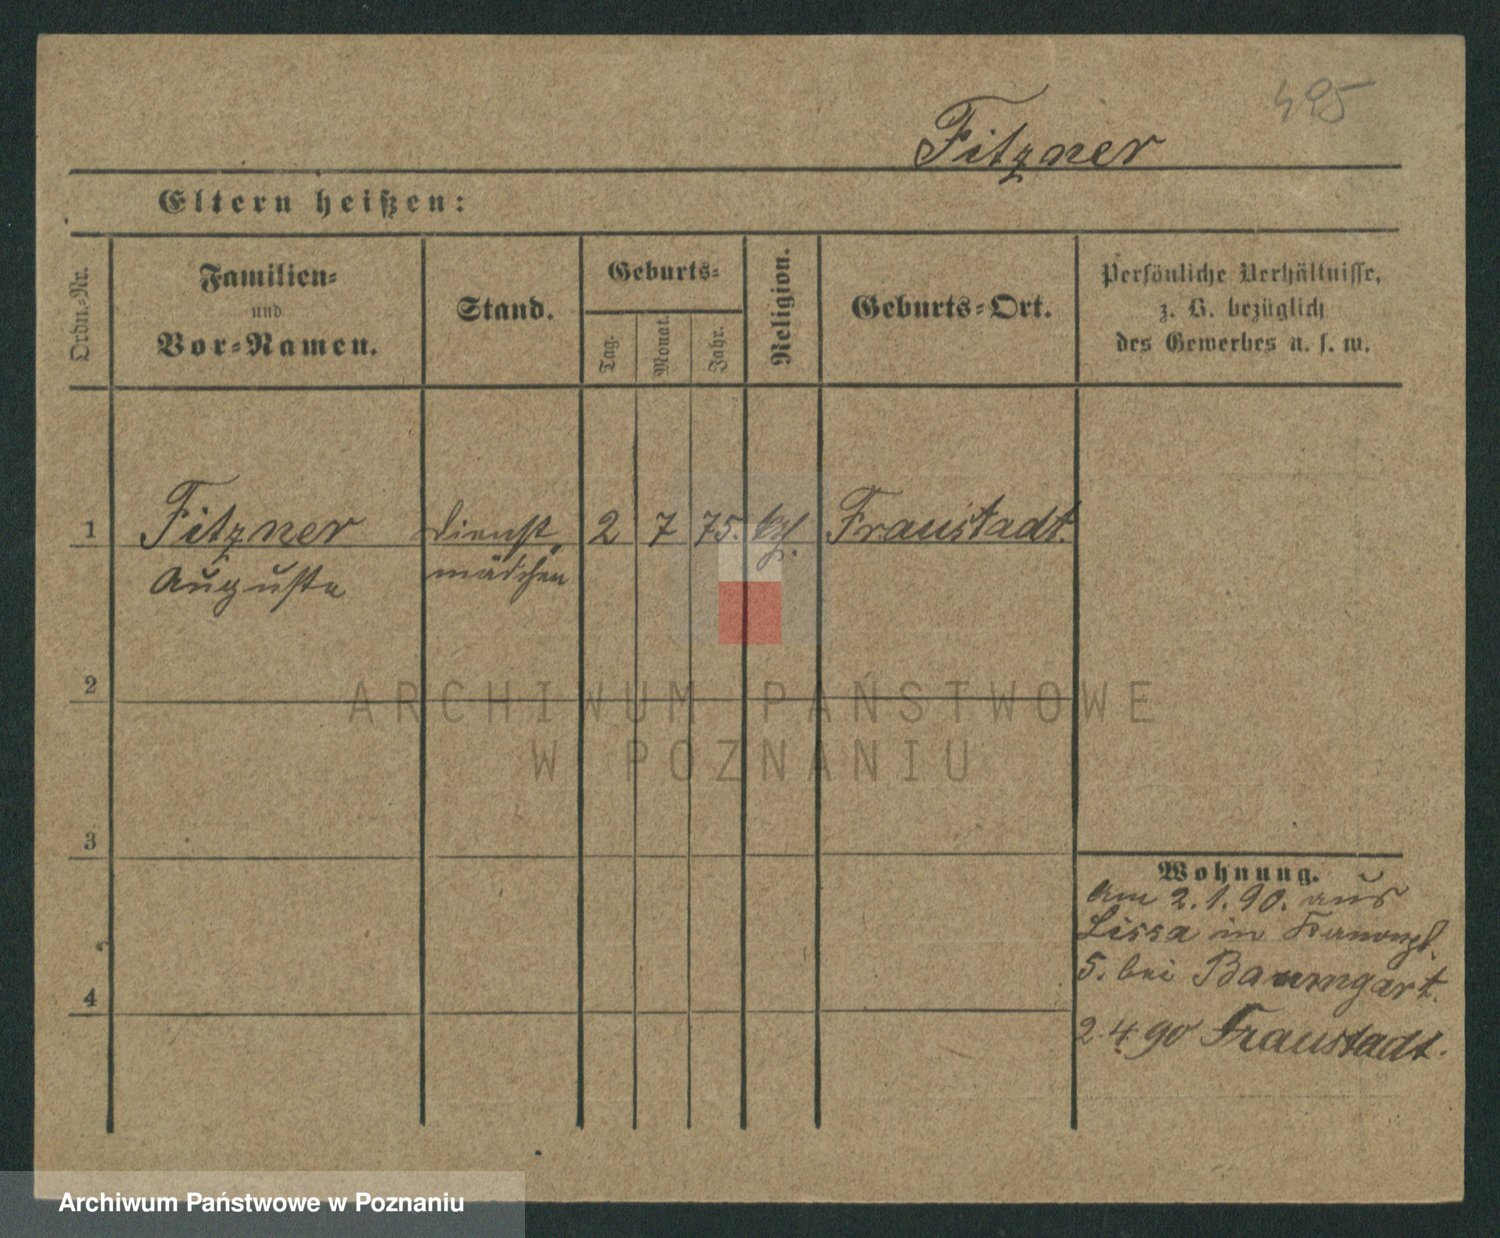 495
Fitzner
Eltern heißen:
Ordn.-Nr.
Familien-
und
Vor-Namen.
Stand.
Geburts-
Tag.
Monat.
Jahr.
Religion.
Geburts-Ort.
Persönliche Verhältnisse,
z. B. bezüglich
des Gewerbes u. s. w.
1 Fitzner Dienst 2 7 75. Fraustadt.
Auguste mädchen
2
3
4
Wohnung.
Am 2.1.90. aus
Lissa in Kanonpl.
5. bei Baumgart.
2.4.90 Fraustadt.
ARCHIWUM PAŃSTWOWE
W POZNANIU
Archiwum Państwowe w Poznaniu